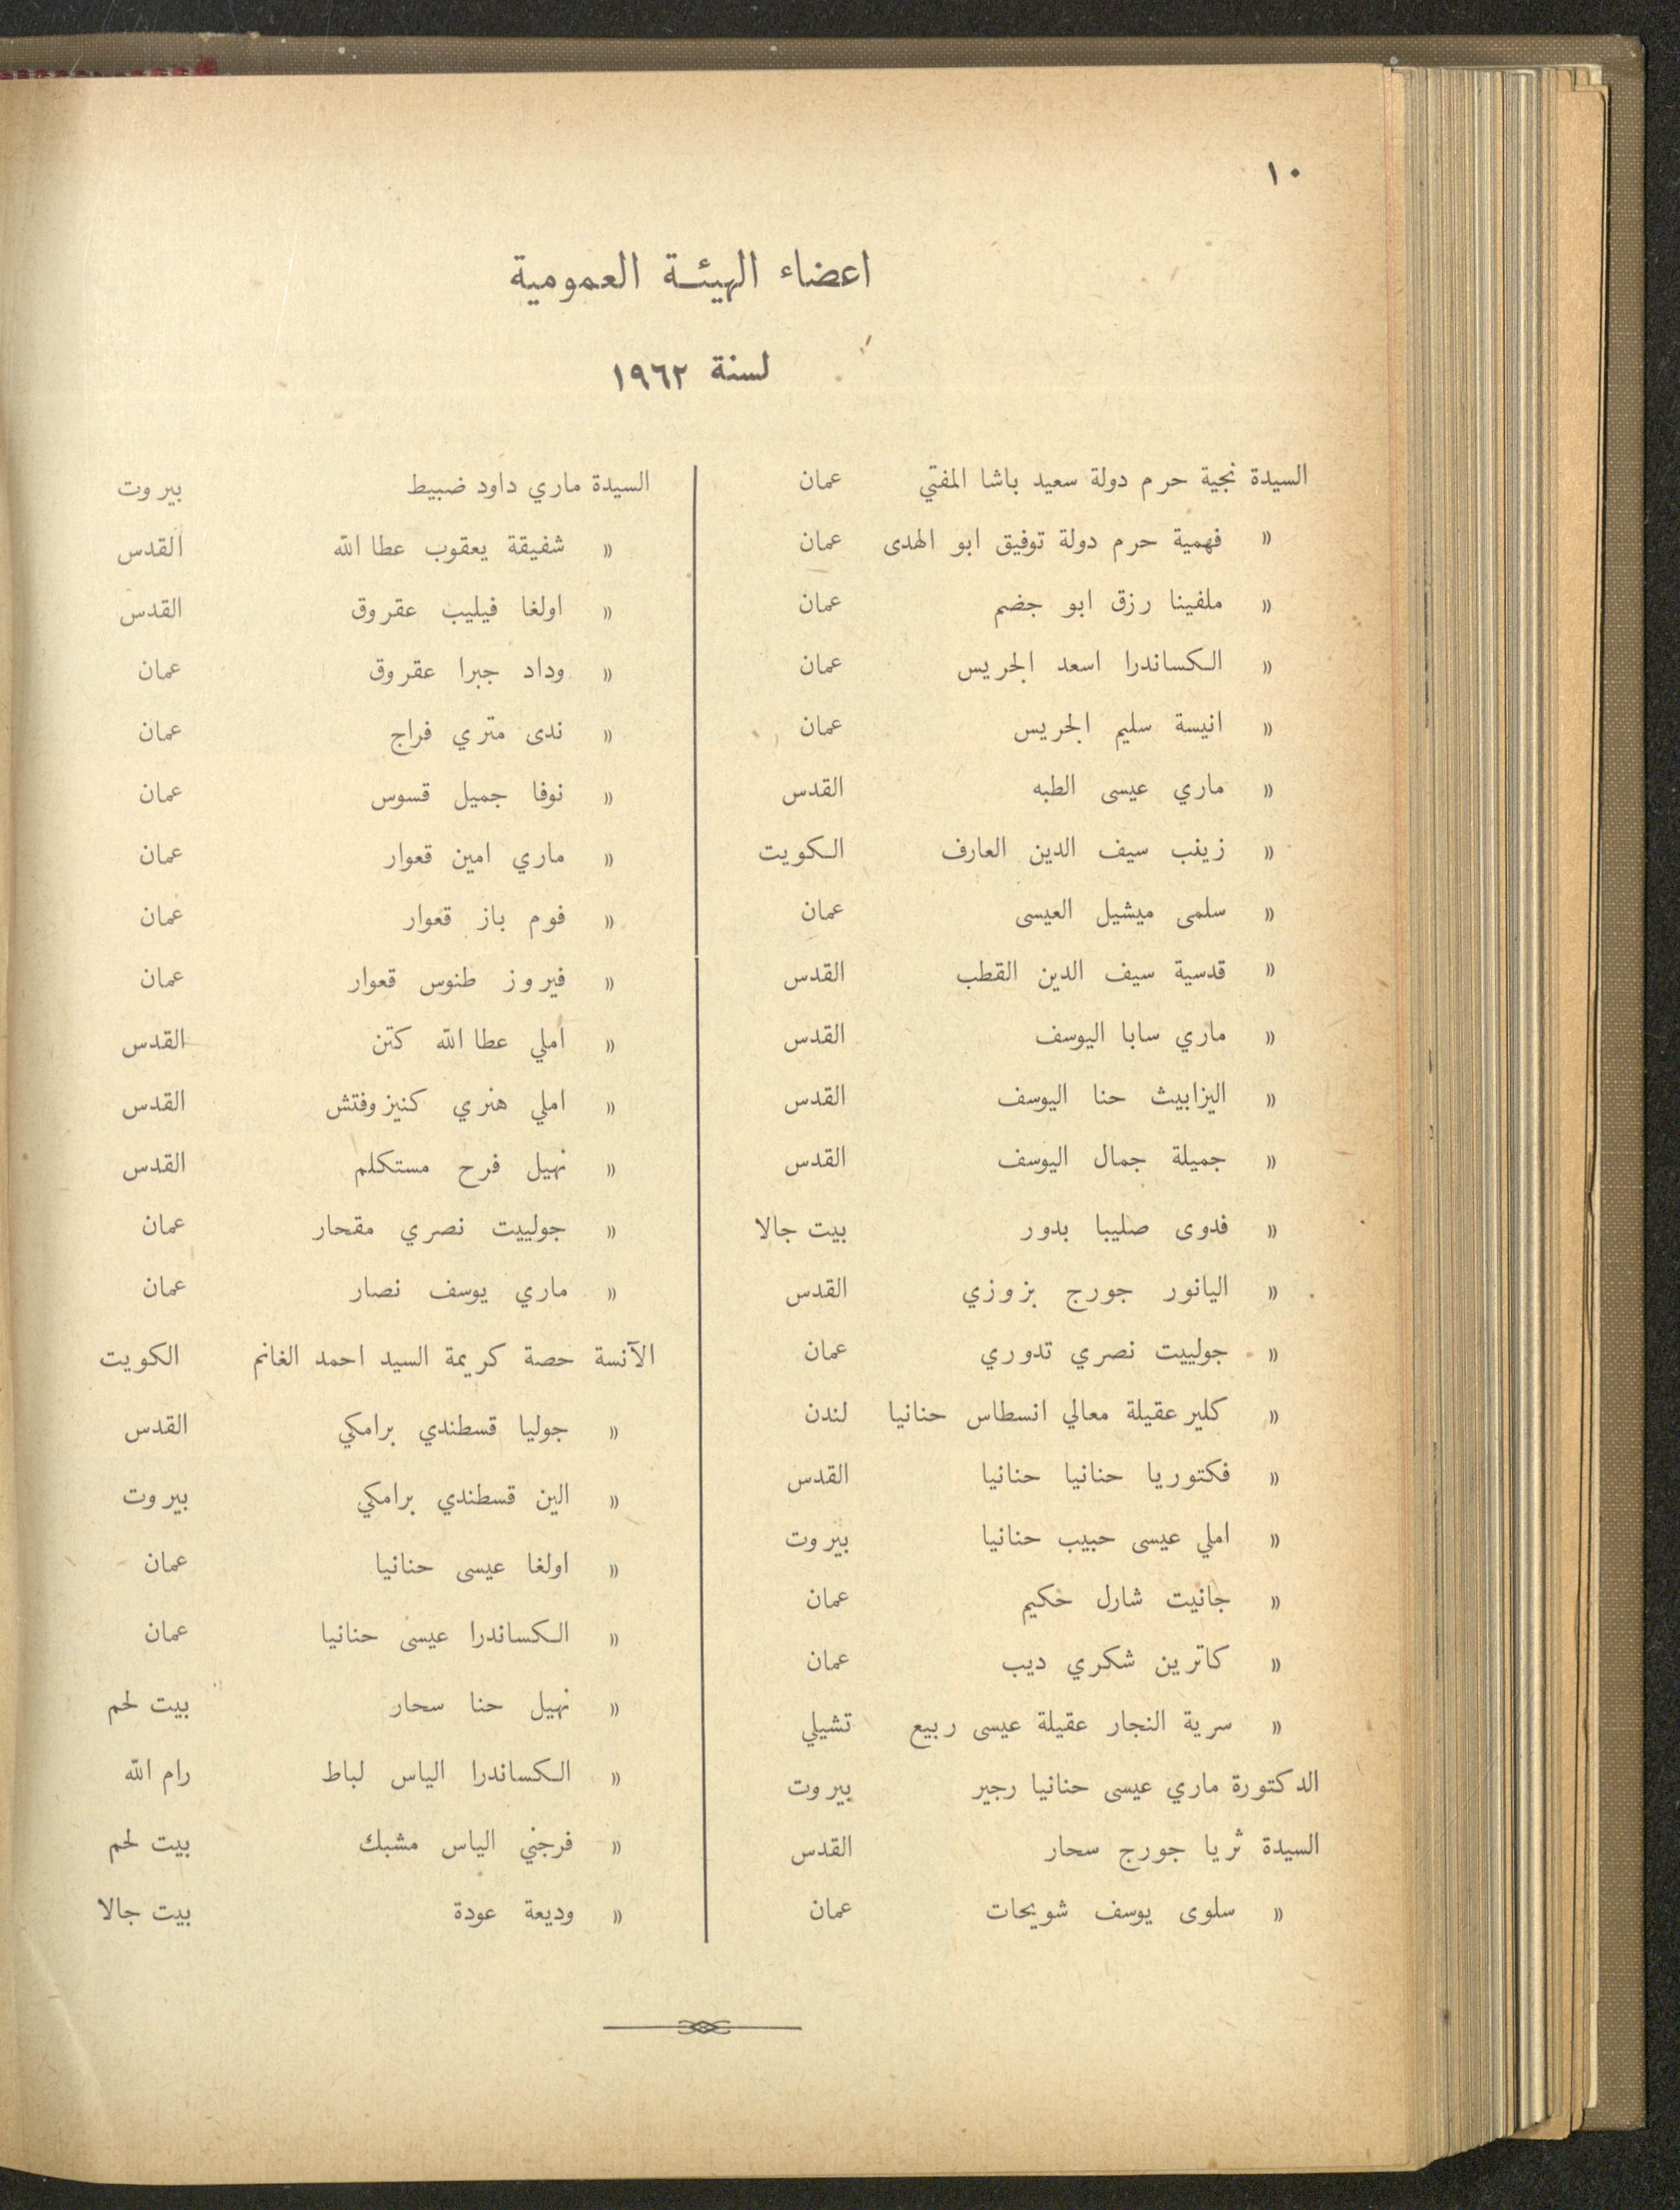 ١٠
اعضاء الهيئة العمومية
لسنة ١٩٦٢
السيدة نجية حرم دولة سعيد باشا المفتي عمان
« فهمية حرم دولة توفيق ابو الهدى عمان
« ملفينا رزق ابو جضم عمان
« الكساندرا اسعد الجريس عمان
« انيسة سليم الجريس عمان
« ماري عيسى الطبه القدس
« زينب سيف الدين العارف الكويت
« سلمى ميشيل العيسى عمان
« قدسية سيف الدين القطب القدس
« ماري سابا اليوسف القدس
« اليزابيث حنا اليوسف القدس
« جميلة جمال اليوسف القدس
« فدوى صليبا بدور بيت جالا
« اليانور جورج بزوزي القدس
« جولييت نصري تدوري عمان
« كلير عقيلة معالي انسطاس حنانيا لندن
« فكتوريا حنانيا حنانيا القدس
« املي عيسى حبيب حنانيا بيروت
« جانيت شارل حكيم عمان
« كاترين شكري ديب عمان
« سرية النجار عقيلة عيسى ربيع تشيلي
الدكتورة ماري عيسى حنانيا رجير بيروت
السيدة ثريا جورج سحار القدس
« سلوى يوسف شويحات عمان
السيدة ماري داود ضبيط بيروت
« شفيقة يعقوب عطا الله القدس
« اولغا فيليب عقروق القدس
« وداد جبرا عقروق عمان
« ندى متري فراج عمان
« نوفا جميل قسوس عمان
« ماري امين قعوار عمان
« فوم باز قعوار عمان
« فيروز طنوس قعوار عمان
« املي عطا الله كتن القدس
« املي هنري كنيزوفتش القدس
« نهيل فرح مستكلم القدس
« جولييت نصري مقحار عمان
« ماري يوسف نصار عمان
الآنسة حصة كريمة السيد احمد الغانم الكويت
« جوليا قسطندي برامكي القدس
« الين قسطندي برامكي بيروت
« اولغا عيسى حنانيا عمان
« الكساندرا عيسى حنانيا عمان
« نهيل حنا سحار بيت لحم
« الكساندرا الياس لباط رام الله
« فرجني الياس مشبك بيت لحم
« وديعة عودة بيت جالا